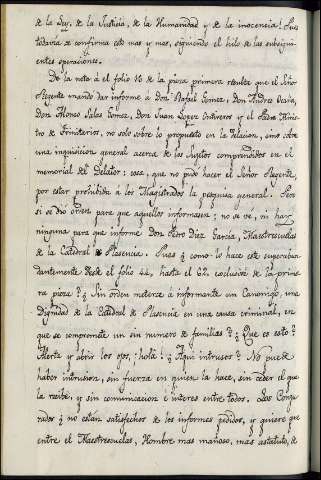 de la Ley, de la Justicia, de la Humanidad y de la inocencia! Pues
todavia se confirma esto mas y mas, siguiendo el hilo de las subsigui-
entes operaciones.
De la nota á el folio 16 de la pieza primera resulta que el Señor
Regente mandó dar informe á Don Rafael Gomez, Don Andres
Don Alonso Salas Gomez, Don Juan Lopez Contreros y el Padre Minis-
tro de Trinitarios, no solo sobre lo propuesto en la Delacion, sino sobre
una inquisicion general acerca de los Sugetos comprendidos en el
memorial del Delator: cosa, que no pudo hacer el Señor Regente,
por estar prohibida á los Magistrados la pesquisa general. Pero
si se dio orden para que aquellos informasen; no se vé, ni hay
ninguna para que informe Don Pedro Diez Garcia, Maestrescuelas
de la Catedral de Plasencia. Pues ¿como lo hace este superabun-
dantemente desde el folio 44, hasta el 62. exclusive de la prime-
ra pieza? ¿Sin orden meterse á informante un Canonigo, una
Dignidad de la Catedral de Plasencia en una causa criminal, en
que se compromete un sin numero de familias? ¿Que es esto?
Alerta y abrir los ojos; ¡hola! ¿Aqui intrusos? No puede
haber intrusion, sin fuerza en quien la hace, sin ceder el que
la recibe, y sin comunicacion é interes entre todos. Los Conju-
rados ¿no estan satisfechos de los informes pedidos, y quieren que
entre el Maestrescuelas, Hombre mas mañoso, mas astututo, de